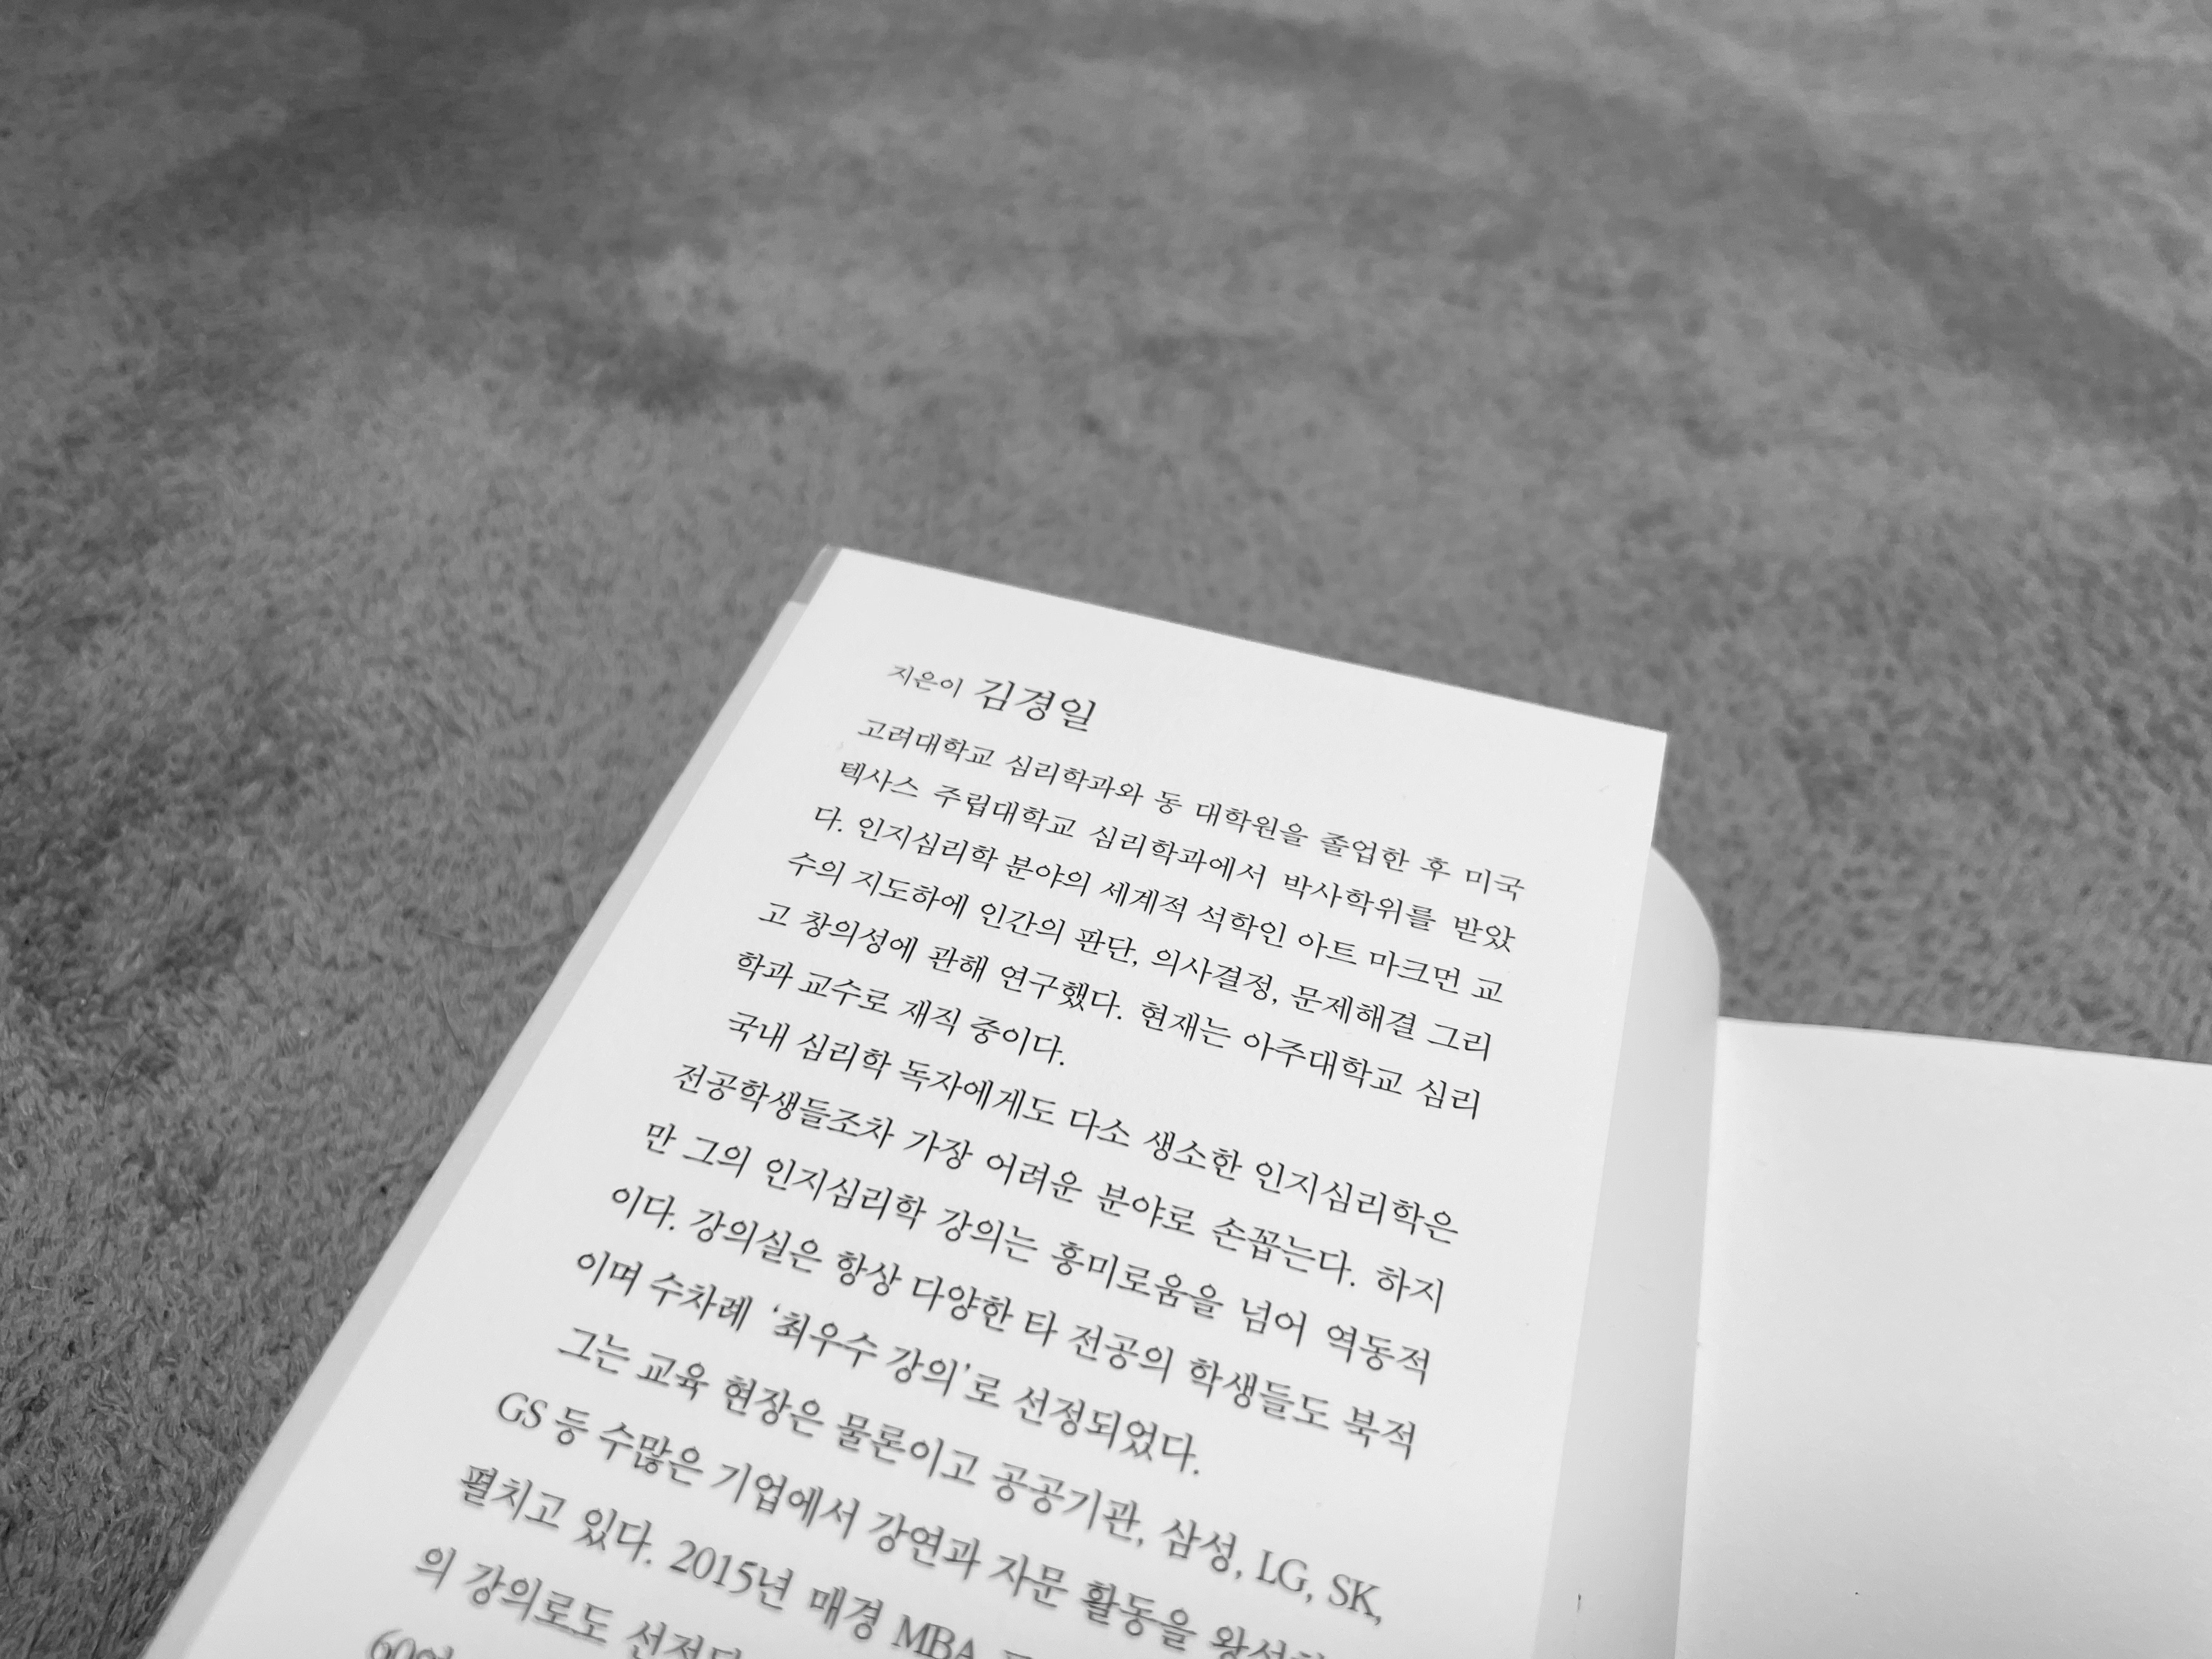 지은이 김경일
고려대학교 심리학과와 동 대학원을 졸업한 후 미국
텍사스 주립대학교 심리학과에서 박사학위를 받았
다. 인지심리학 분야의 세계적 석학인 아트 마크먼 교
수의 지도하에 인간의 판단, 의사결정, 문제해결 그리
고 창의성에 관해 연구했다. 현재는 아주대학교 심리
학과 교수로 재직 중이다.
국내 심리학 독자에게도 다소 생소한 인지심리학은
전공학생들조차 가장 어려운 분야로 손꼽는다. 하지
만 그의 인지심리학 강의는 흥미로움을 넘어 역동적
이다. 강의실은 항상 다양한 타 전공의 학생들도 북적
이며 수차례 ‘최우수 강의’로 선정되었다.
그는 교육 현장은 물론이고 공공기관, 삼성, LG, SK,
GS 등 수많은 기업에서 강연과 자문 활동을
펼치고 있다. 2015년 매경 MBA
의 강의로도